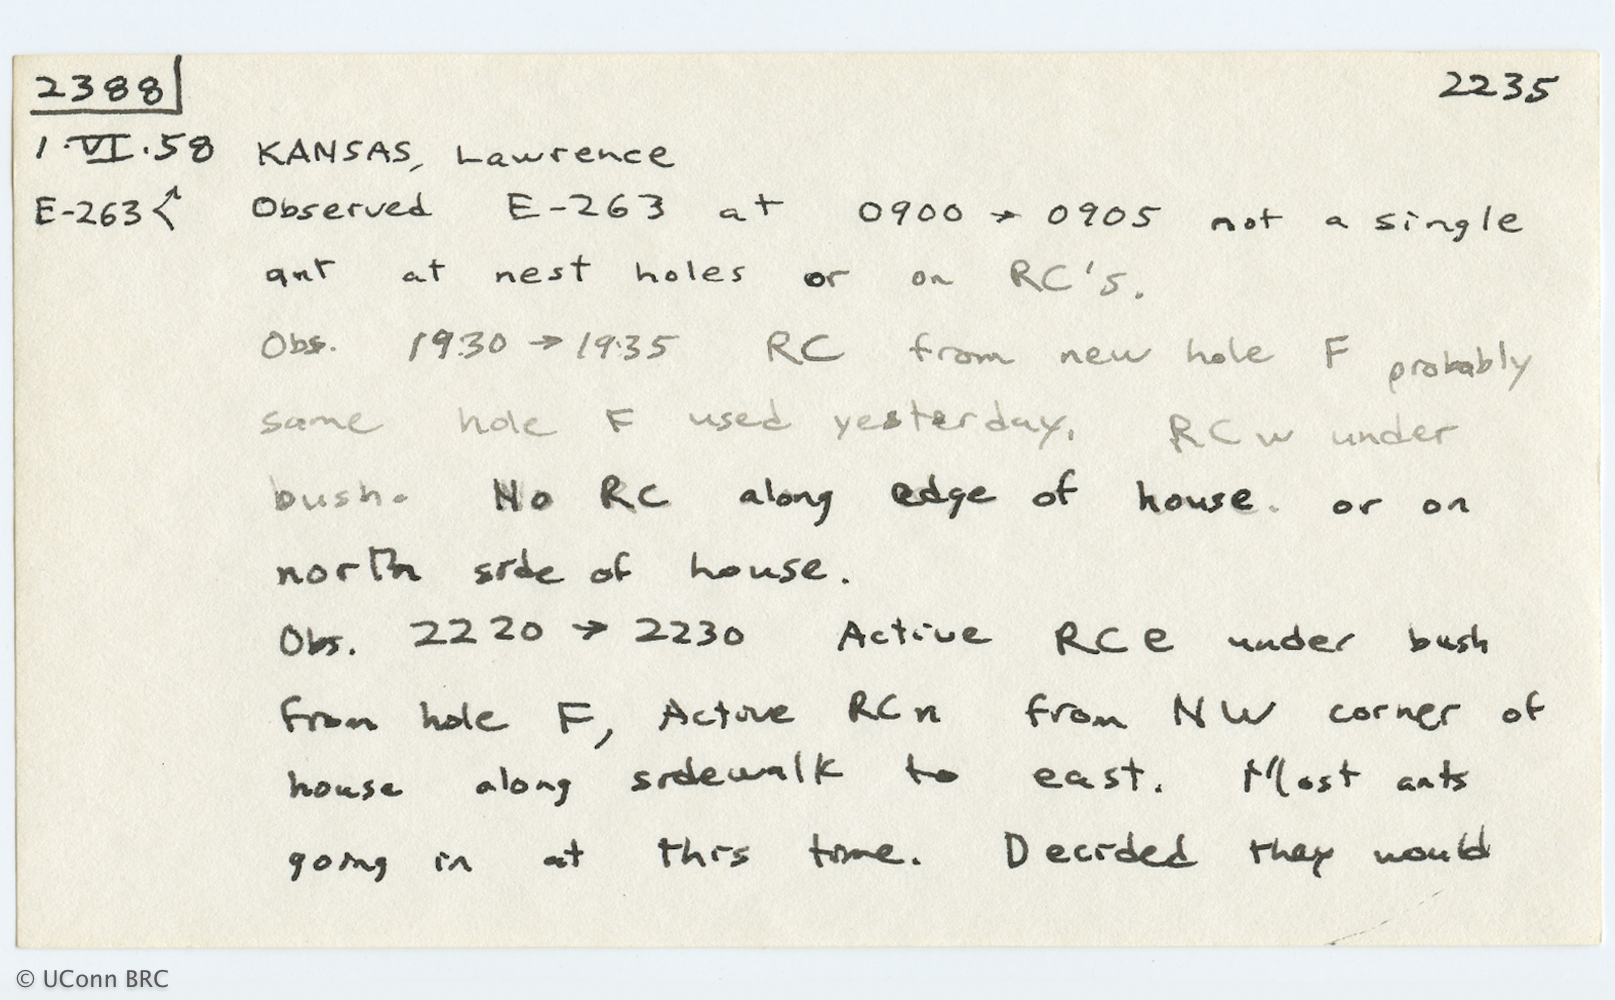 2388 2235
1.VI.58 KANSAS, Lawrence
E-263 Observed E-263 at 0900 → 0905 not a single
ant at nest holes or on RC's.
Obs. 1930 → 1935 RC from new hole F probably
same hole F used yesterday. RCw under
bush. No RC along edge of house. or on
north side of house.
Obs. 2220 → 2230 Active RCe under bush
from hole F, Active RCn from NW corner of
house along sidewalk to east. Most ants
going in at this time. Decided they would
© UConn BRC